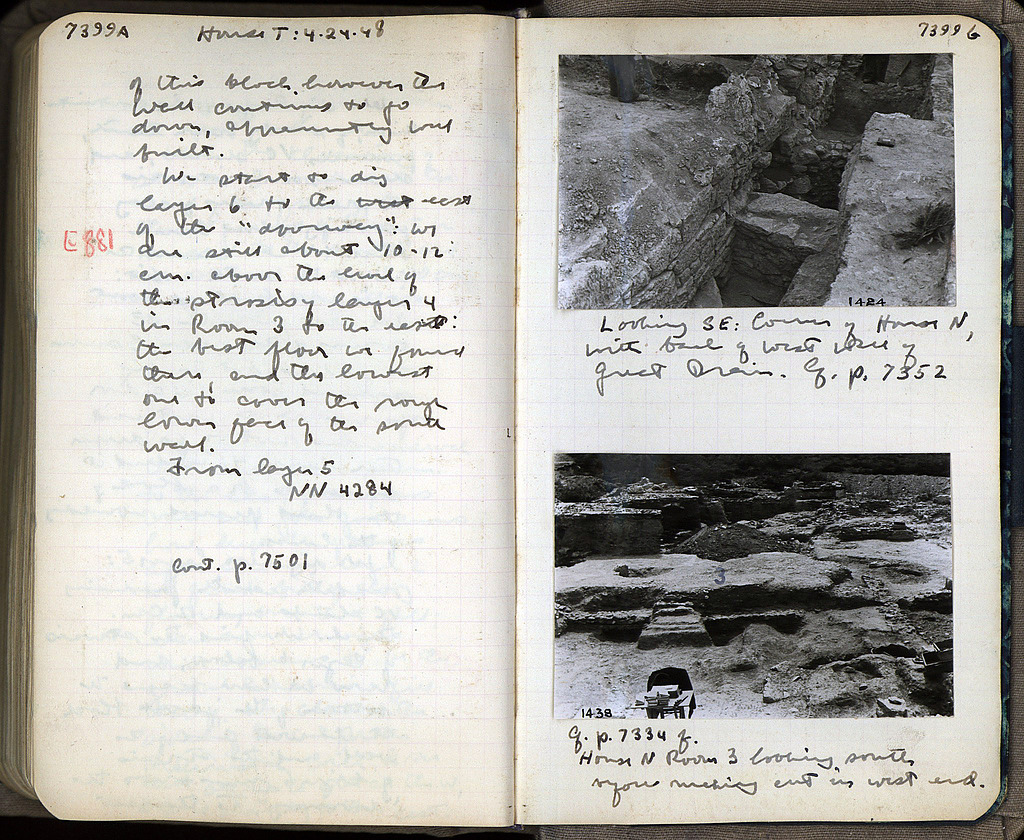 7399A House T: 4·24·48
of this block, however the
wall continues to go
down, apparently well
built.
We start to dig
layer 6 to the west east
of the "doorway": we
E 881
are still about 10-12
cm. above the level of
the strosisy layer 4
in Room 3 to the east:
the best floor we found
there, and the lowest
one to cover the rough
lower face of the south
wall.
From layer 5
NN 4284
cont. p. 7501
7399 b
1424
Looking SE: Corner of House N,
with back of west wall of
Great Drain. Cf. p. 7352
3
1438
Cf. p. 7334 f.
House N Room 3 looking south
square making cut in west end.